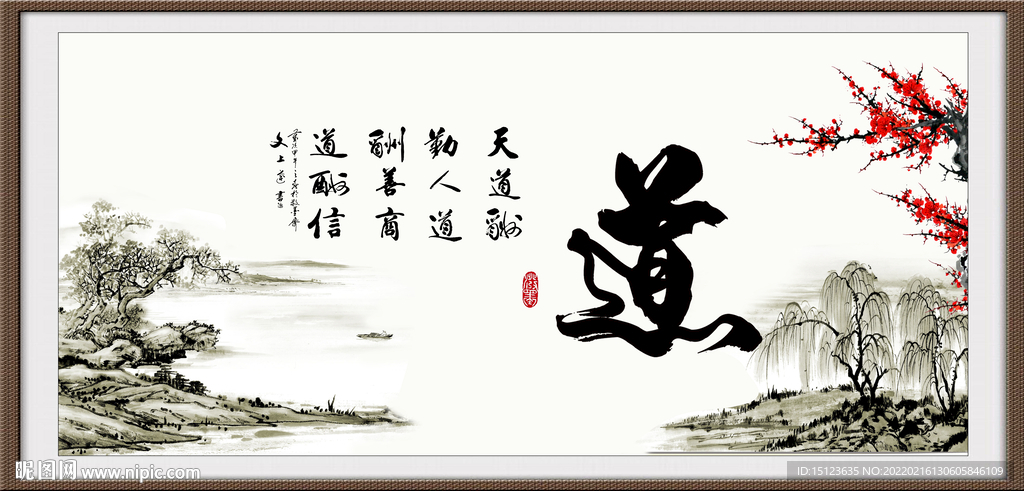 道
天道酬
勤人道
酬善商
道酬信
文上道書
昵图网 www.nipic.com
ID:15123635 NO:20220216130605846109